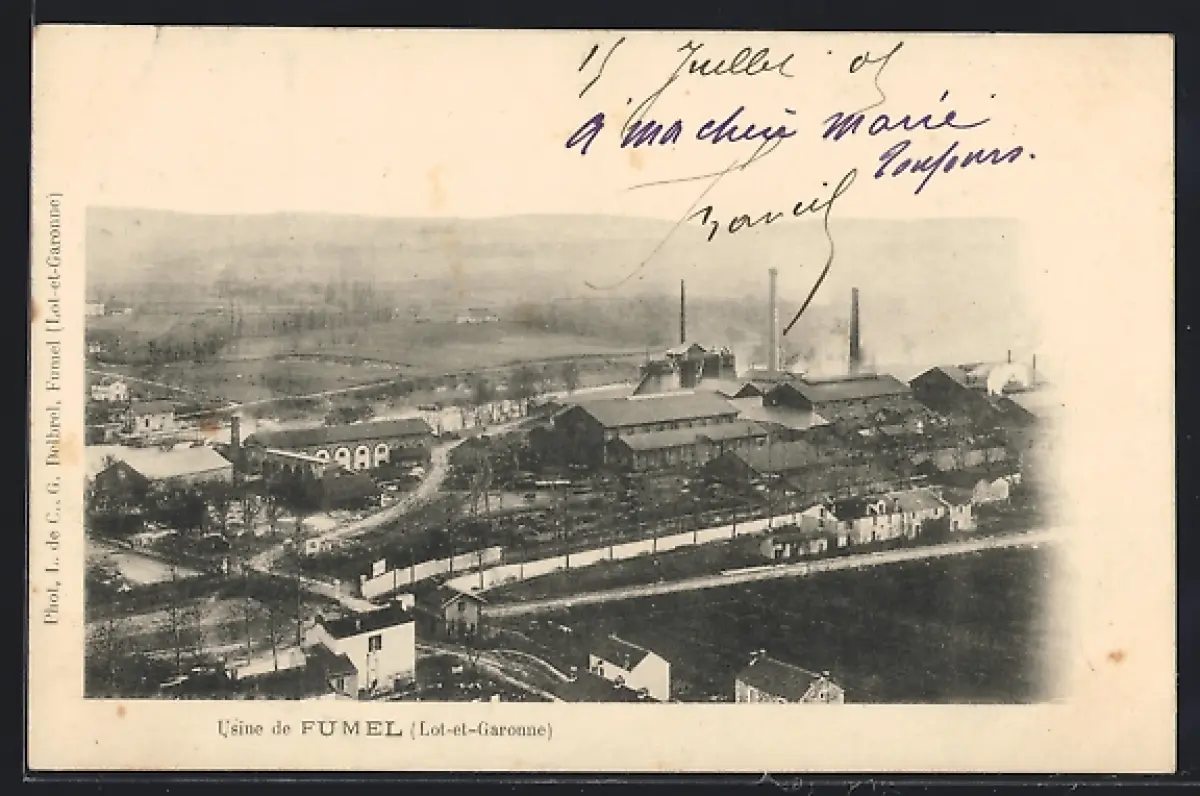 15 Juillet 05
a ma chère Marie
Toujours.
Usine de FUMEL (Lot-et-Garonne)
Phot. L. de C., G. Delbrel, Fumel (Lot-et-Garonne)